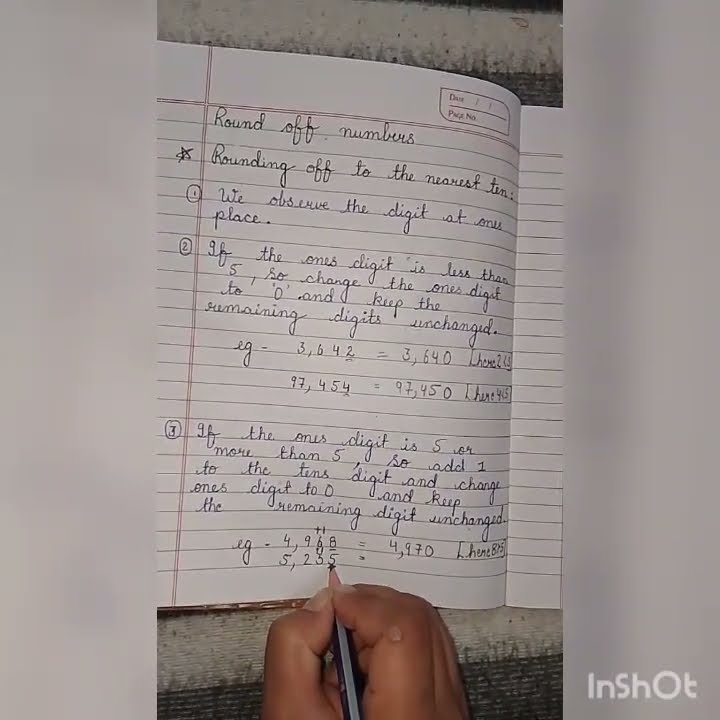 Date / /
Page No.
Round off numbers
* Rounding off to the nearest ten:
① We observe the digit at ones
place.
② If the ones digit is less than
5, so change the ones digit
to '0' and keep the
remaining digits unchanged.
eg - 3,642 = 3,640 [here 2<5]
97,454 = 97,450 [here 4<5]
③ If the ones digit is 5 or
more than 5, so add 1
to the tens digit and change
ones digit to 0 and keep
the remaining digit unchanged.
+1
eg - 4,968 = 4,970 [here 8>5]
5,235 =
InShOt